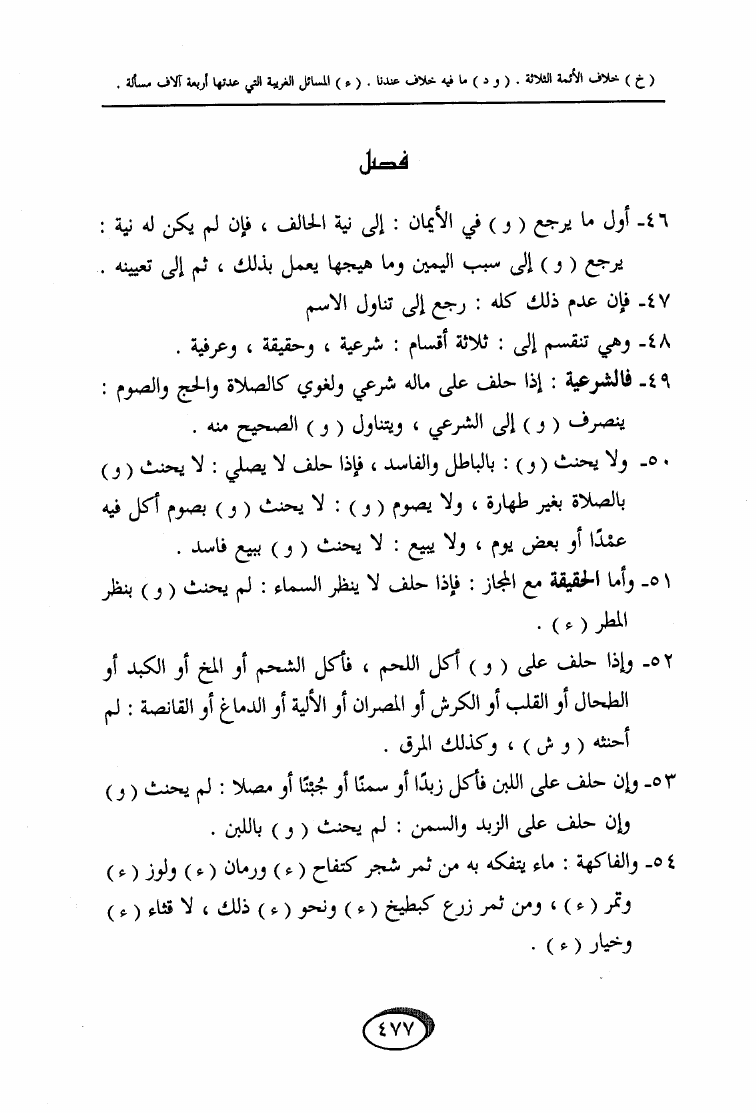 ( خ ) خلاف الأئمة الثلاثة . ( و د ) ما فيه خلاف عندنا . ( ء ) المسائل الغريبة التي عدتها أربعة آلاف مسألة .
فصل
٤٦ـ أول ما يرجع ( و ) في الأيمان : إلى نية الحالف ، فإن لم يكن له نية :
يرجع ( و ) إلى سبب اليمين وما هيجها يعمل بذلك ، ثم إلى تعيينه .
٤٧ـ فإن عدم ذلك كله : رجع إلى تناول الاسم
٤٨ـ وهي تنقسم إلى : ثلاثة أقسام : شرعية ، وحقيقة ، وعرفية .
٤٩ـ فالشرعية : إذا حلف على ماله شرعي ولغوي كالصلاة والحج والصوم :
ينصرف ( و ) إلى الشرعي ، ويتناول ( و ) الصحيح منه .
٥٠ـ ولا يحنث ( و ) : بالباطل والفاسد ، فإذا حلف لا يصلي : لا يحنث ( و )
بالصلاة بغير طهارة ، ولا يصوم ( و ) : لا يحنث ( و ) بصوم أكل فيه
عمْدًا أو بعض يوم ، ولا يبيع : لا يحنث ( و ) ببيع فاسد .
٥١ـ وأما الحقيقة مع المجاز : فإذا حلف لا ينظر السماء : لم يحنث ( و ) بنظر
المطر ( ء ) .
٥٢ـ وإذا حلف على ( و ) أكل اللحم ، فأكل الشحم أو المخ أو الكبد أو
الطحال أو القلب أو الكرش أو المصران أو الألية أو الدماغ أو القانصة : لم
أحنثه ( و ش ) ، وكذلك المرق .
٥٣ـ وإن حلف على اللبن فأكل زبدًا أو سمنًا أو جُبْنًا أو مصلا : لم يحنث ( و )
وإن حلف على الزبد والسمن : لم يحنث ( و ) باللبن .
٥٤ـ والفاكهة : ماء يتفكه به من ثمر شجر كتفاح ( ء ) ورمان ( ء ) ولوز ( ء )
وتمر ( ء ) ، ومن ثمر زرع كبطيخ ( ء ) ونحو ( ء ) ذلك ، لا قثاء ( ء )
وخيار ( ء ) .
٤٧٧